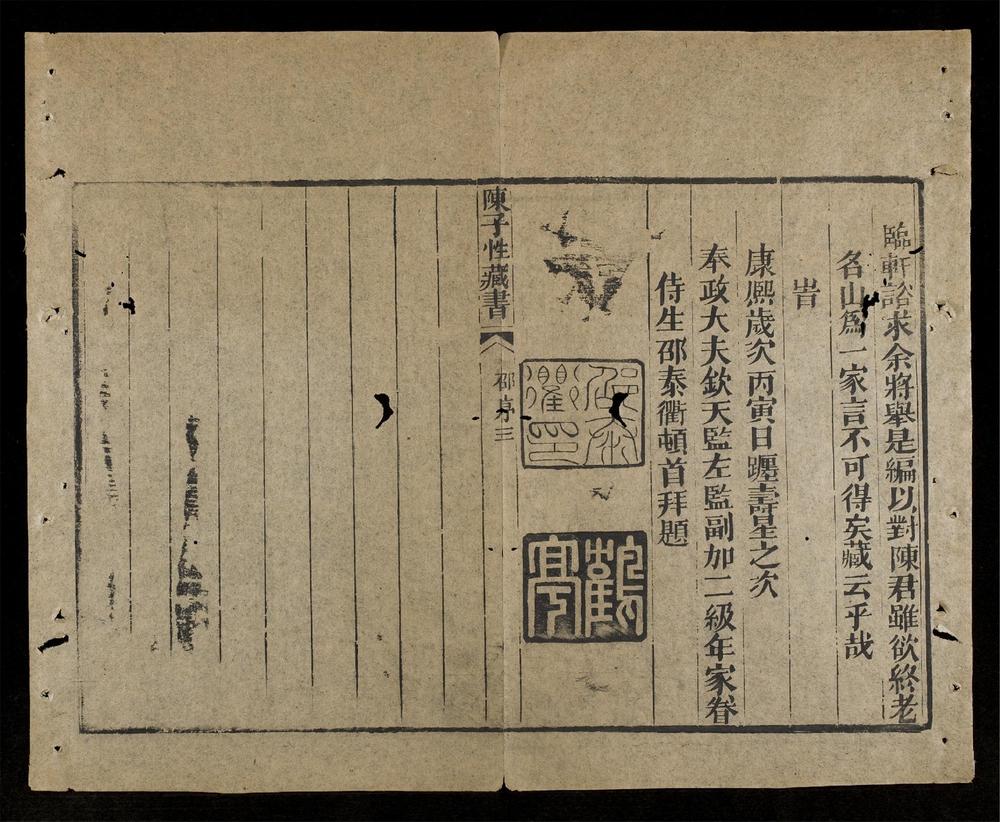 臨軒諮求余將舉是編以對陳君雖欲終老
名山爲一家言不可得矣藏云乎哉
旹
康熈歲次丙寅日躔壽星之次
奉政大夫欽天監左監副加二級年家眷
侍生邵泰衢頓首拜題
邵泰衢印
鶴亭
陳子性藏書
邵序
三